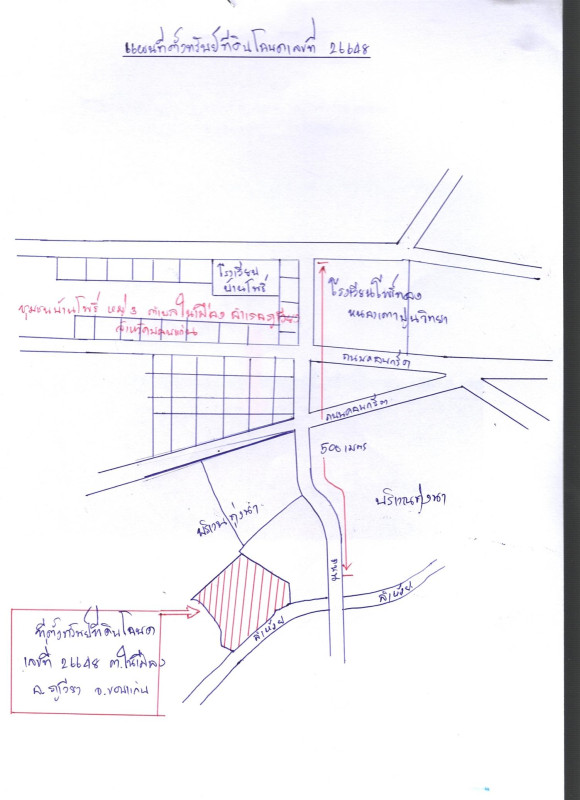 แผนที่ตั้งทรัพย์ที่ดินโฉนดเลขที่ 26648
โรงเรียน
บ้านโพธิ์
โรงเรียนโพธิ์ทอง
หนองเตาปูนวิทยา
ชุมชนบ้านโพธิ์ หมู่ 3 ตำบลในเมือง อำเภอภูเวียง
จังหวัดขอนแก่น
ถนนคอนกรีต
ถนนคอนกรีต
500 เมตร
บริเวณทุ่งนา
บริเวณทุ่งนา
ถนน
ลำห้วย
ลำห้วย
ที่ตั้งทรัพย์ที่ดินโฉนด
เลขที่ 26648 ต.ในเมือง
จ.ขอนแก่น